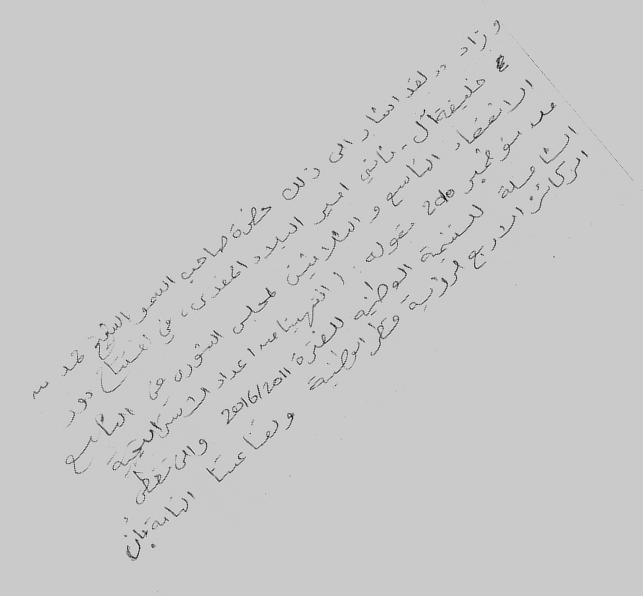 وزاد " لقد اشار الى ذلك حضرة صاحب السمو الشيخ حمد بن
خليفة آل ثاني امير البلاد المفدى، في افتتاح دور
الانعقاد التاسع والثلاثين لمجلس الشورى في التاسع
من نوفمبر 2010 بقوله : ( انتهينا من اعداد الاستراتيجية
الشاملة للتنمية الوطنية للفترة 2016/2011 والتي تغطي
الركائز الاربع لرؤية قطر الوطنية وقناعتنا الثابتة بأن